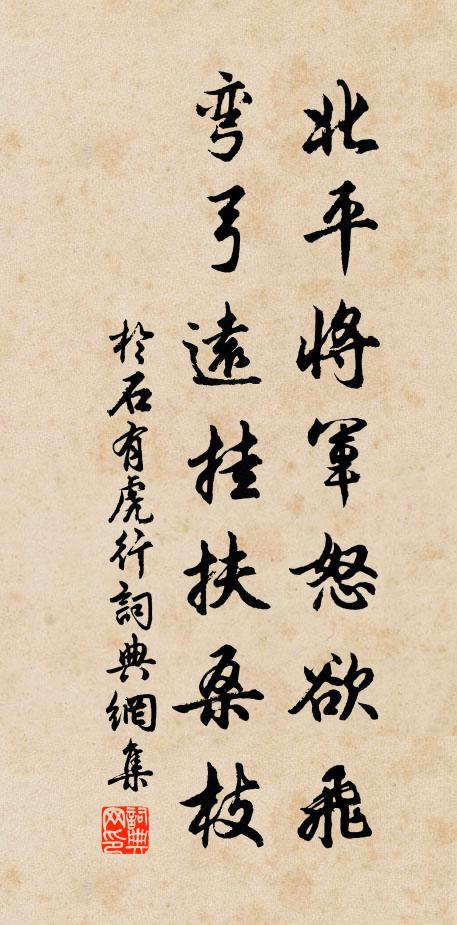 北平將軍怒欲飛
彎弓遠挂扶桑枝
於石有虎行詞典網集
詞典網印